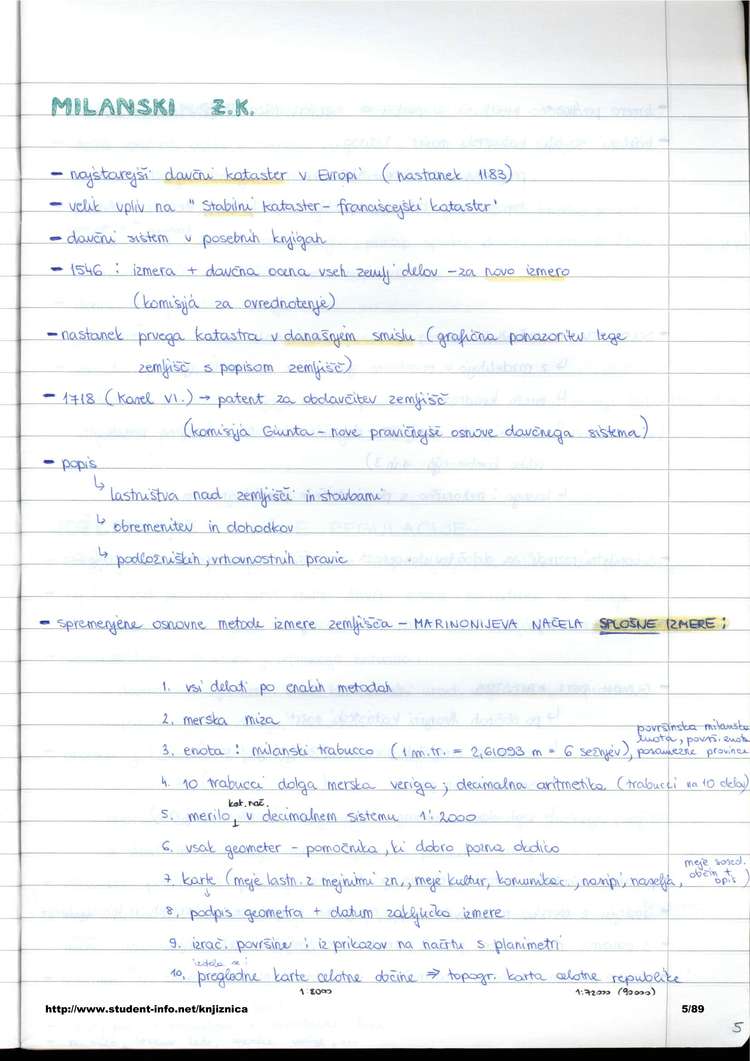 MILANSKI Z.K.
- najstarejši davčni kataster v Evropi (nastanek 1183)
- velik vpliv na "Stabilni kataster - franciscejski kataster"
- davčni sistem v posebnih knjigah
- 1546 : izmera + davčna ocena vseh zemlj. delov - za novo izmero
(komisija za ovrednotenje)
- nastanek prvega katastra v današnjem smislu (grafična ponazoritev lege
zemljišč s popisom zemljišč)
- 1718 (Karel VI.) → patent za obdavčitev zemljišč
(komisija Giunta - nove pravičnejše osnove davčnega sistema)
- popis
↳ lastništva nad zemljišči in stavbami
↳ obremenitev in dohodkov
↳ podložniških, vrhovnostnih pravic
- spremenjene osnovne metode izmere zemljišča - MARINONIJEVA NAČELA SPLOŠNE IZMERE:
1. vsi delati po enakih metodah
2. merska miza
površinska milanska
enota, površ. enota
3. enota : milanski trabucco (1 m.tr. = 2,61093 m = 6 sežnjev), posamezne province
4. 10 trabucci dolga merska veriga ; decimalna aritmetika (trabucci na 10 delov)
kat. nač.
5. merilo v decimalnem sistemu 1:2000
6. vsak geometer - pomočnika, ki dobro pozna okolico
meje sosed.
občin + opis
7. karte (meje lastn. z mejnimi zn., meje kultur, komunikac., nasipi, naselja, )
8. podpis geometra + datum zaključka izmere
9. izrač. površine : iz prikazov na načrtu s planimetri
izdela se
10. pregledne karte celotne občine ⇒ topogr. karta celotne republike
1:8000 1:72000 (90000)
http://www.student-info.net/knjiznica 5/89
5